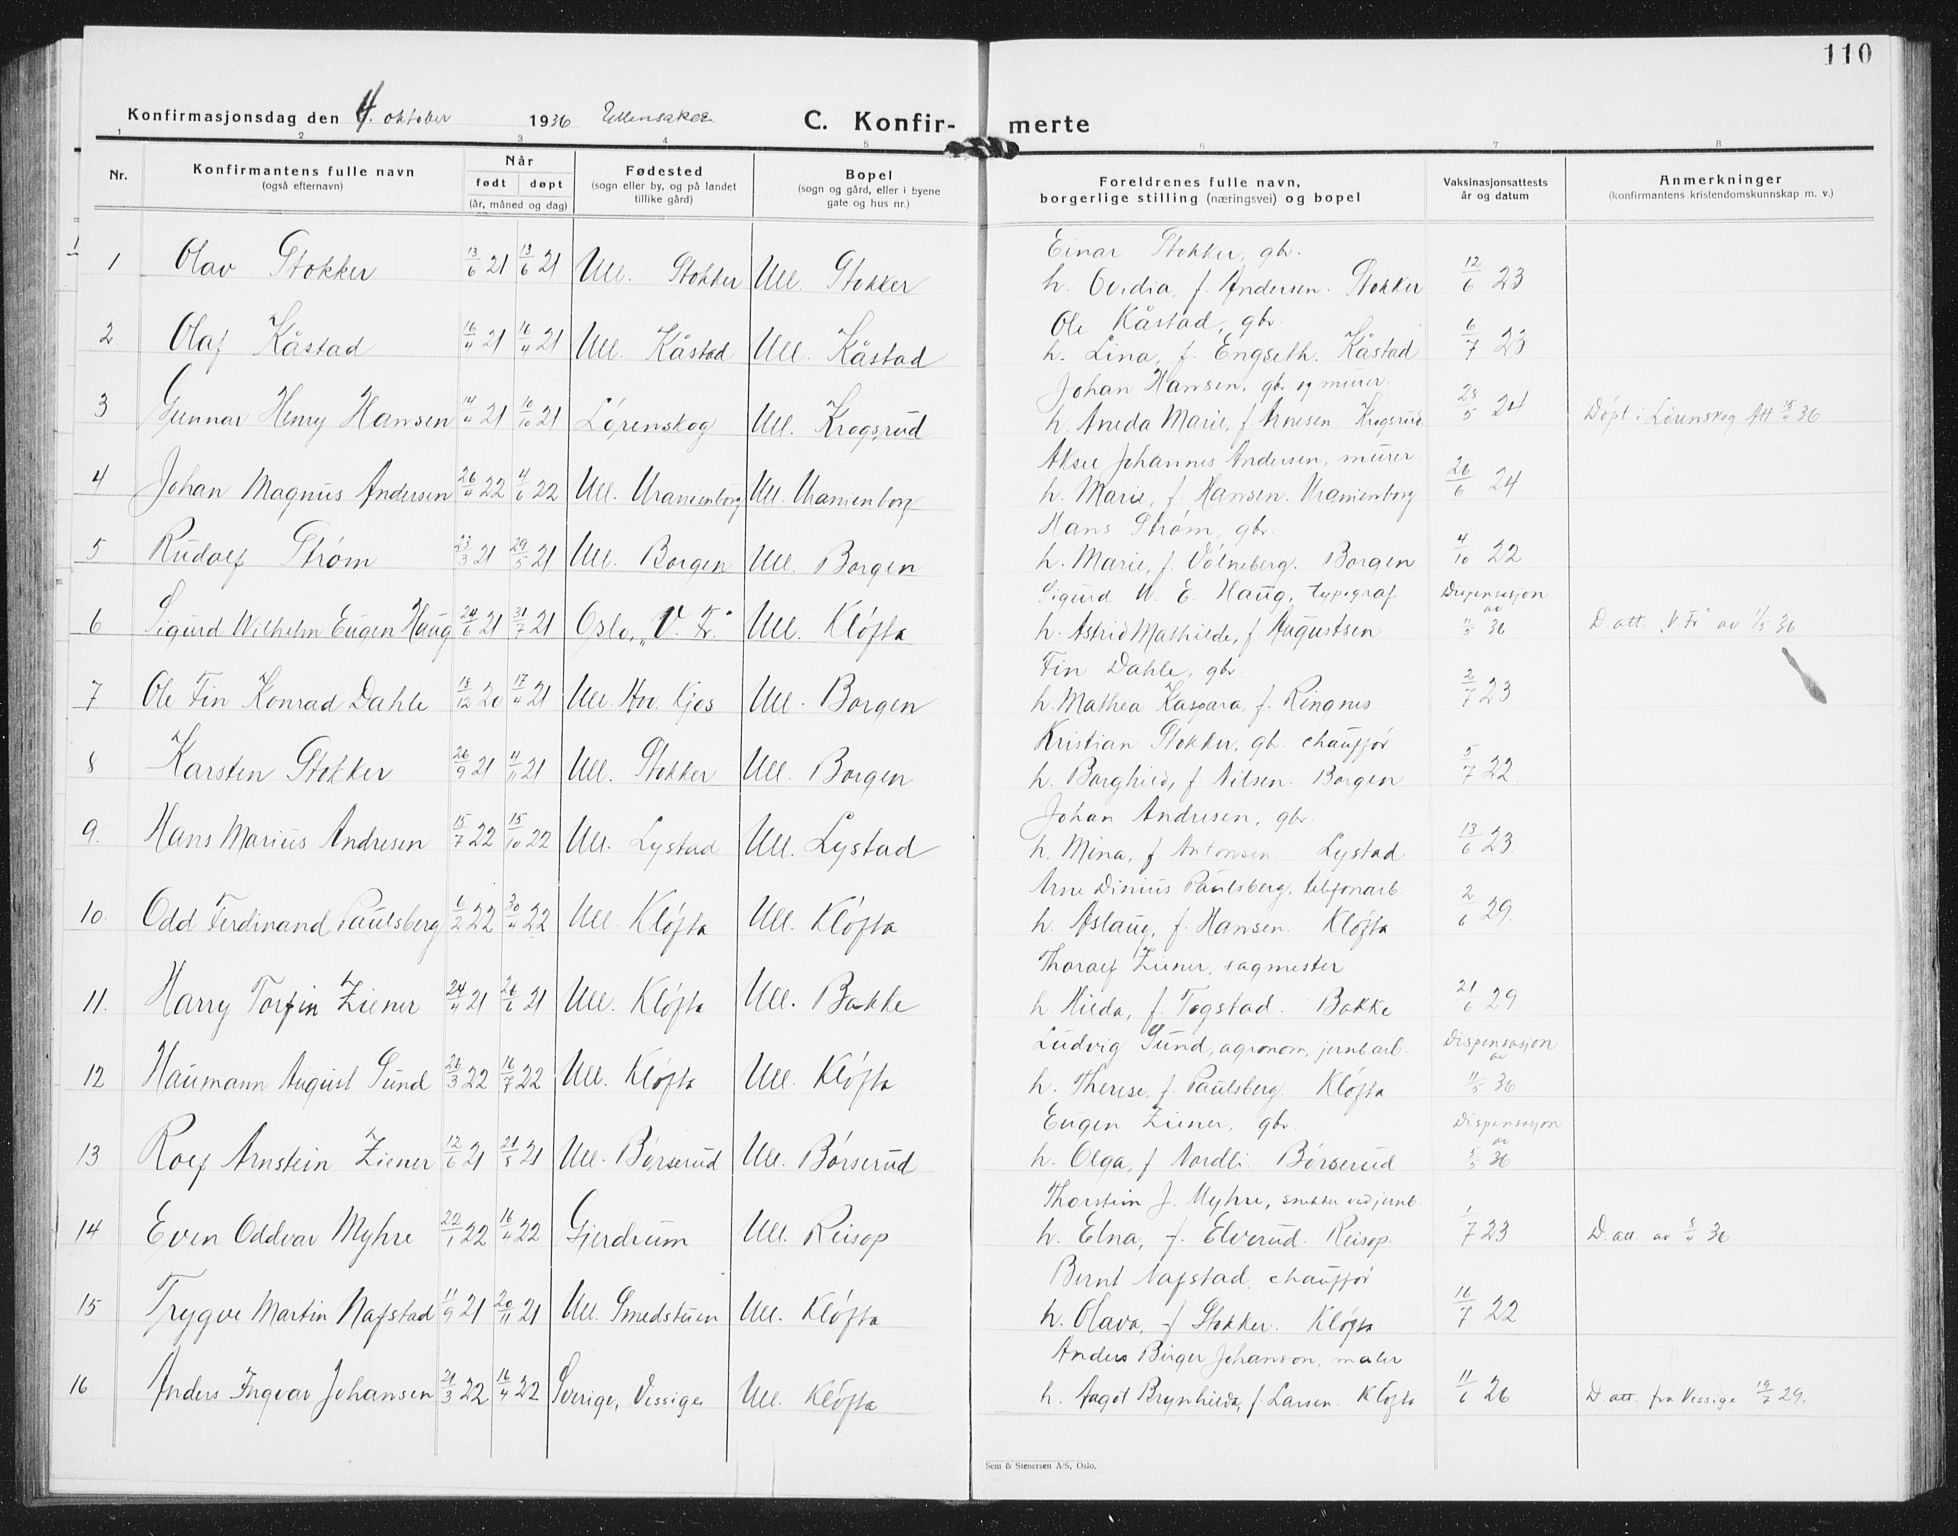 110
Konfirmasjonsdag den 4. oktober 1936 Ullensaker C. Konfir- merte
1 2 3 4 5 6 7 8
Nr. Konfirmantens fulle navn (også efternavn) Når født døpt (år, måned og dag) Fødested (sogn eller by, og på landet tillike gård) Bopel (sogn og gård, eller i byene gate og hus nr.) Foreldrenes fulle navn, borgerlige stilling (næringsvei) og bopel Vaksinasjonsattests år og datum Anmerkninger (konfirmantens kristendomskunnskap m. v.)
Einar Stokker, gbr.
1 Olav Stokker 13/6 21 13/6 21 Ull. Stokker Ull. Stokker h. Ovidia, f. Andersen. Stokker 12/6 23
Ole Kåstad, gbr.
2 Olaf Kåstad 16/4 21 16/4 21 Ull. Kåstad Ull. Kåstad h. Lina, f. Engseth. Kåstad 6/7 23
Johan Hansen, gbr. og murer.
3 Gunnar Henry Hansen 14/4 21 16/10 21 Lørenskog Ull. Krogsrud h. Aneda Marie, f. Arnesen Krogsrud 23/5 24 Døpt i Lørenskog Att 15/4 36
Aksel Johannes Andersen, murer
4 Johan Magnus Andersen 26/4 22 4/6 22 Ull. Uranienborg Ull. Uranienborg h. Marie, f. Hansen. Uranienborg 26/6 24
Hans Strøm, gbr.
5 Rudolf Strøm 23/3 21 29/5 21 Ull. Borgen Ull. Borgen h. Marie, f. Volneberg. Borgen 4/10 22
Sigurd W. E. Haug, typograf Dispensasjon av
6 Sigurd Wilhelm Eugen Haug 24/6 21 31/7 21 Oslo, „V. Fr." Ull. Kløfta h. Astrid Mathilde, f. Augustsen 11/5 36 D. att. „V. Fr" av 1/5 36
Fin Dahle, gbr.
7 Ole Fin Konrad Dahle 18/12 20 17/4 21 Ull. Hov. Kjos Ull. Borgen h. Mathea Kaspara, f. Ringnes 2/7 23
Kristian Stokker, gb. chauffør
8 Karsten Stokker 26/9 21 4/11 21 Ull. Stokker Ull. Borgen h. Borghild, f. Nilsen. Borgen 5/7 22.
Johan Andresen, gbr.
9. Hans Marius Andresen 15/7 22 15/10 22 Ull. Lystad Ull. Lystad h. Mina, f. Antonsen. Lystad 13/6 23.
Arne Dinius Paulsberg, telefonarb.
10. Odd Ferdinand Paulsberg 6/2 22 30/4 22 Ull. Kløfta Ull. Kløfta h. Aslaug, f. Hansen. Kløfta 2/6 29.
Tholf Ziener, sagmester
11. Harry Torfin Ziener 24/4 21 26/6 21 Ull. Kløfta Ull. Bakke h. Hilda, f. Togstad. Bakke 21/6 29.
Ludvig Sund, agronom, jernb arb. Dispensasjon av
12 Haumann August Sund 26/3 22 16/7 22 Ull. Kløfta Ull. Kløfta h. Therese, f. Paulsberg. Kløfta 11/5 36
Eugen Ziener, gbr. Dispensasjon av
13 Rolf Arnstein Ziener 12/6 21 21/5 21 Ull. Børserud Ull. Børserud h. Olga, f. Nordli. Børserud 5/5 36
Thorstein J. Myhre, snekker ved jernb.
14 Even Oddvar Myhre 22/1 22 16/4 22 Gjerdrum Ull. Reisop h. Elna, f. Elverud. Reisop. 1/7 23 D. att. av 5/4 36
Bernt Nafstad, chauffør
15 Trygve Martin Nafstad 11/9 21 20/11 21 Ull. Smedstuen Ull. Kløfta h. Olava, f. Stokker. Kløfta 16/7 22
Anders Birger Johanson, maler
16 Anders Ingvar Johansen 21/3 22 16/4 22 Sverige, Vessige Ull. Kløfta h. Aagot Brynhilda, f. Larsen. Kløfta 11/6 26 D. att. fra Vessige 19/7 29.
Sem & Stenersen A/S, Oslo.